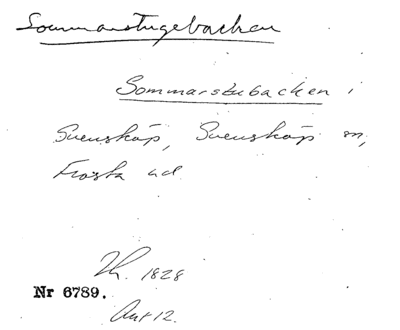 Sommarstugebacken
Sommarstubacken i
Svensköp, Svensköp sn,
Frosta hd
Th. 1828
Nr 6789.
Ant 12.